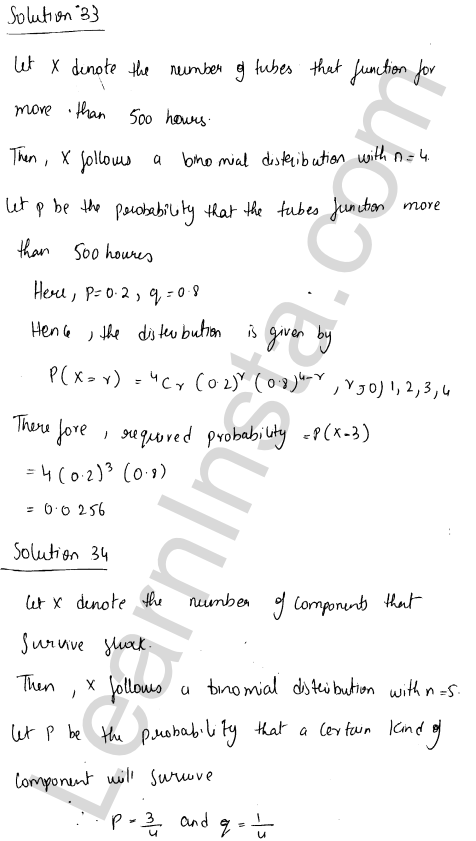 Solution 33
Let X denote the number of tubes that function for
more than 500 hours.
Then, X follows a binomial distribution with n=4.
Let p be the probability that the tubes function more
than 500 hours
Here, P=0.2, q=0.8
Hence, the distribution is given by
P(X=r) = ⁴Cᵣ (0.2)ʳ (0.8)⁴⁻ʳ, r=0,1,2,3,4
Therefore, required probability = P(X=3)
= 4(0.2)³ (0.8)
= 0.0256
Solution 34
Let X denote the number of components that
survive shock.
Then, X follows a binomial distribution with n=5.
Let P be the probability that a certain kind of
component will survive
∴ P = 3/4 and q = 1/4
LearnInsta.com